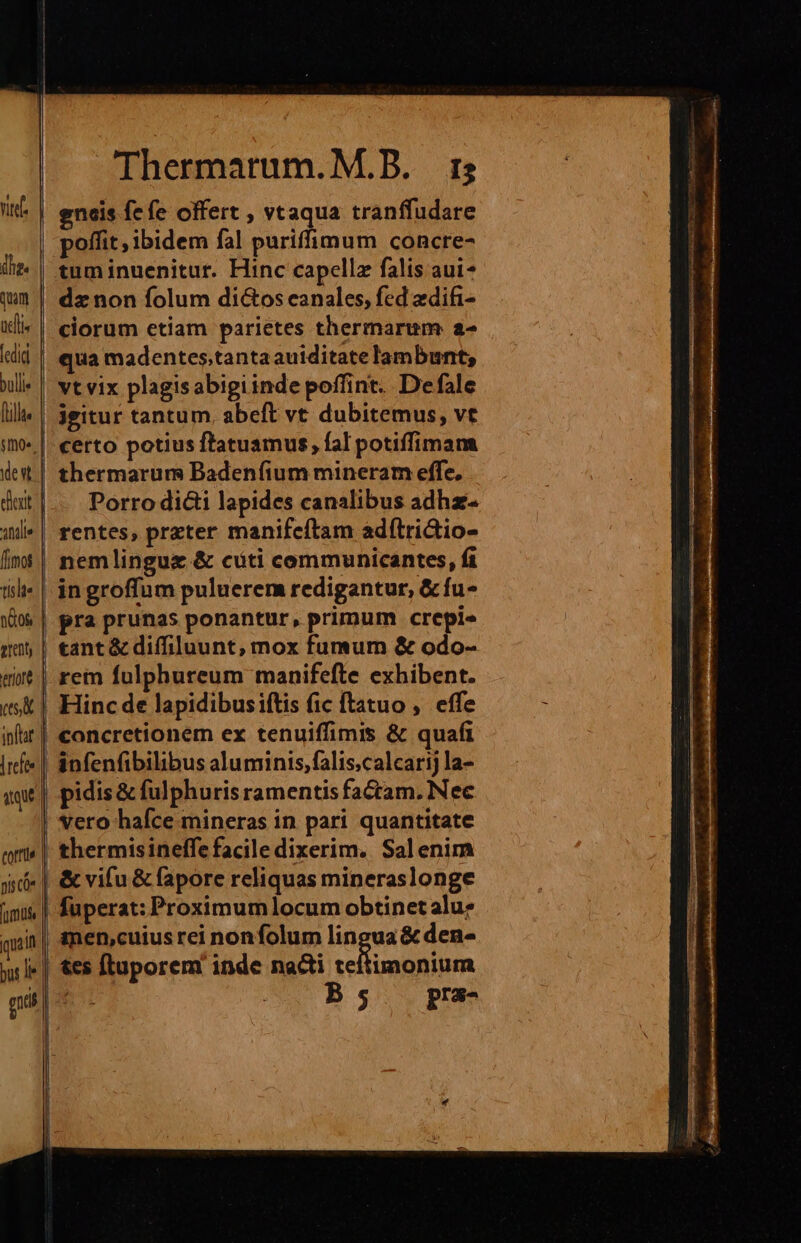 Thermarum. M. B. 15
gneis ſeſe offert, vt aqua tranſſudare
poſſit, ibidem ſal puriſſimum concre-
tum inuenitur. Hinc capellæ ſalis aui-
dæ non ſolum dictos canales, ſed ædifi-
ciorum etiam parietes thermarum a-
qua madentes, tanta auiditate lambunt,
vt vix plagis abigi inde poſſint. De ſale
igitur tantum abeſt vt dubitemus, vt
certo potius ſtatuamus, ſal potiſſimam
thermarum Badenſium mineram eſſe.
Porro dicti lapides canalibus adhæ-
rentes, præter manifeſtam adſtrictio-
nem linguæ & cuti communicantes, ſi
in groſſum puluerem redigantur, & ſu-
pra prunas ponantur, primum crepi-
tant & diffiluunt, mox fumum & odo-
rem ſulphureum manifeſte exhibent.
Hinc de lapidibus iſtis ſic ſtatuo, eſſe
concretionem ex tenuiſſimis & quaſi
inſenſibilibus aluminis, ſalis, calcarij la-
pidis & ſulphuris ramentis factam. Nec
vero haſce mineras in pari quantitate
thermis ineſſe facile dixerim. Sal enim
& viſu & ſapore reliquas mineras longe
ſuperat: Proximum locum obtinet alu-
men, cuius rei non ſolum lingua & den-
tes ſtuporem inde nacti teſtimonium
B 5 præ-